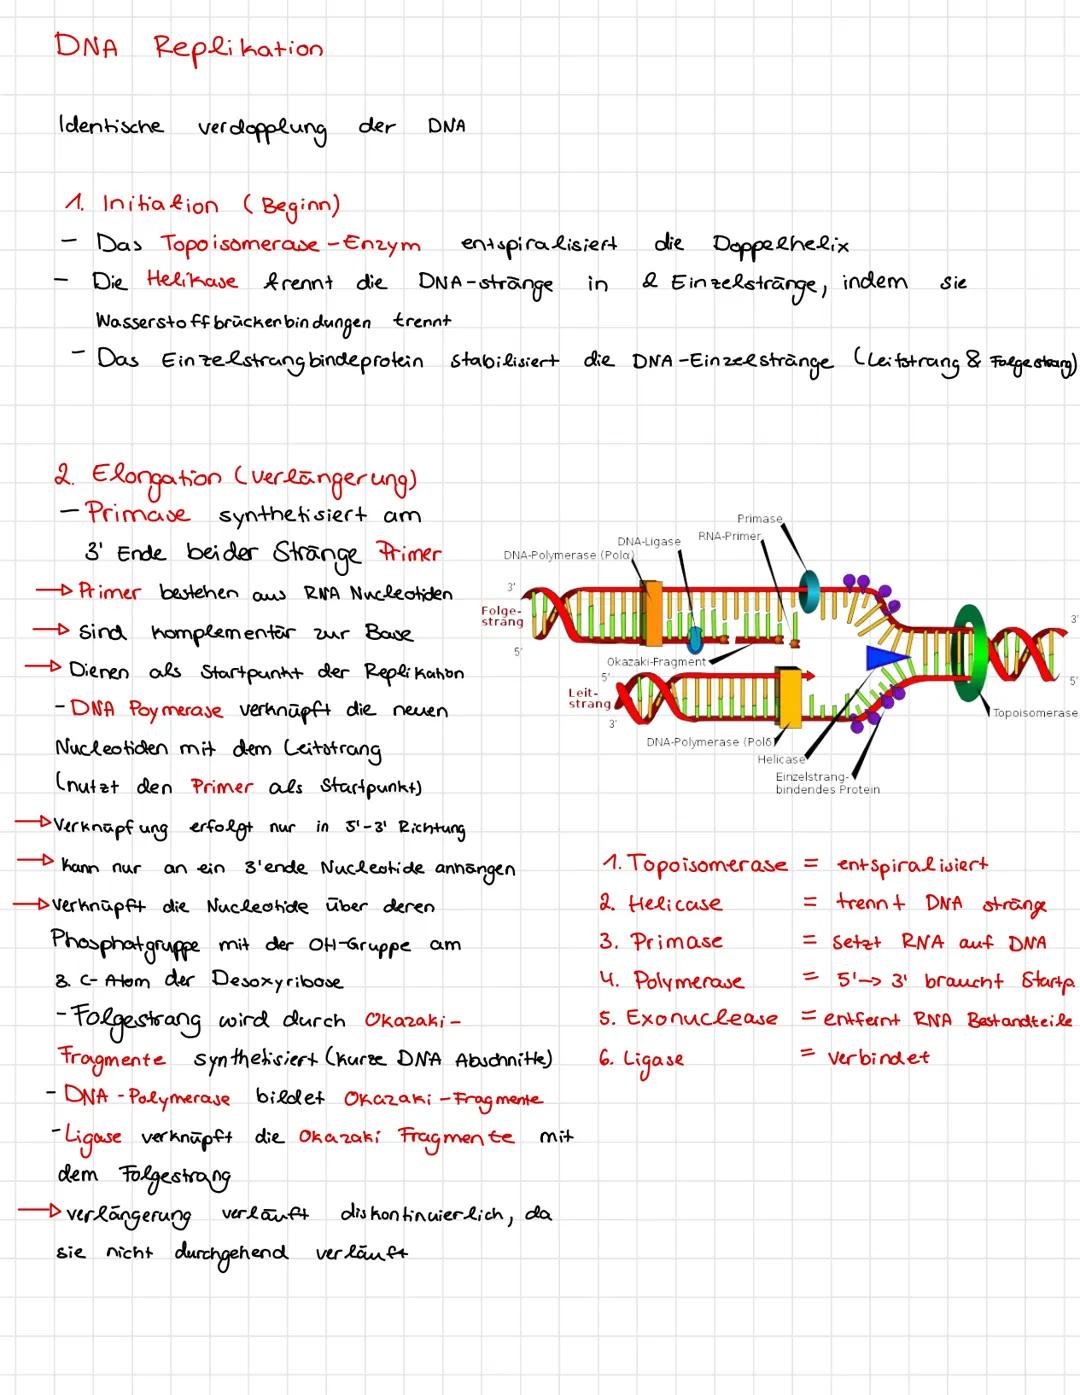 DNA Replikation
Identische verdopplung der DNA
1. Initiation (Beginn)
- Das Topoisomerase-Enzym entspiralisiert die Doppelhelix
- Die Helikase trennt die DNA-stränge in 2 Einzelstränge, indem sie
Wasserstoffbrückenbindungen trennt
- Das Einzelstrangbindeprotein stabilisiert die DNA-Einzelstränge (Leitstrang & Folgestrang)
2. Elongation (verlängerung)
- Primase synthetisiert am
3' Ende beider Stränge Primer
→ Primer bestehen aus RNA Nucleotiden
→ sind komplementär zur Base
→ Dienen als Startpunkt der Replikation
- DNA Poymerase verknüpft die neuen
Nucleotiden mit dem Leitstrang
(nutzt den Primer als Startpunkt)
→ Verknüpfung erfolgt nur in 5'-3' Richtung
→ kann nur an ein 3'ende Nucleotide anhängen
→ verknüpft die Nucleotide über deren
Phosphatgruppe mit der OH-Gruppe am
3. C-Atom der Desoxyribose
- Folgestrang wird durch Okazaki-
Fragmente synthetisiert (kurze DNA Abschnitte)
- DNA-Polymerase bildet Okazaki-Fragmente
- Ligase verknüpft die Okazaki Fragmente mit
dem Folgestrang
→ verlängerung verläuft diskontinuierlich, da
sie nicht durchgehend verläuft
Primase
DNA-Ligase
RNA-Primer
DNA-Polymerase (Polα)
3'
Folge-
strang
5'
Okazaki-Fragment
5'
Leit-
strang
3'
DNA-Polymerase (Polδ)
Helicase
Einzelstrang-
bindendes Protein
3'
5'
Topoisomerase
1. Topoisomerase = entspiralisiert
2. Helicase = trennt DNA stränge
3. Primase = setzt RNA auf DNA
4. Polymerase = 5'→3' braucht Startp.
5. Exonuclease = entfernt RNA Bestandteile
6. Ligase = verbindet